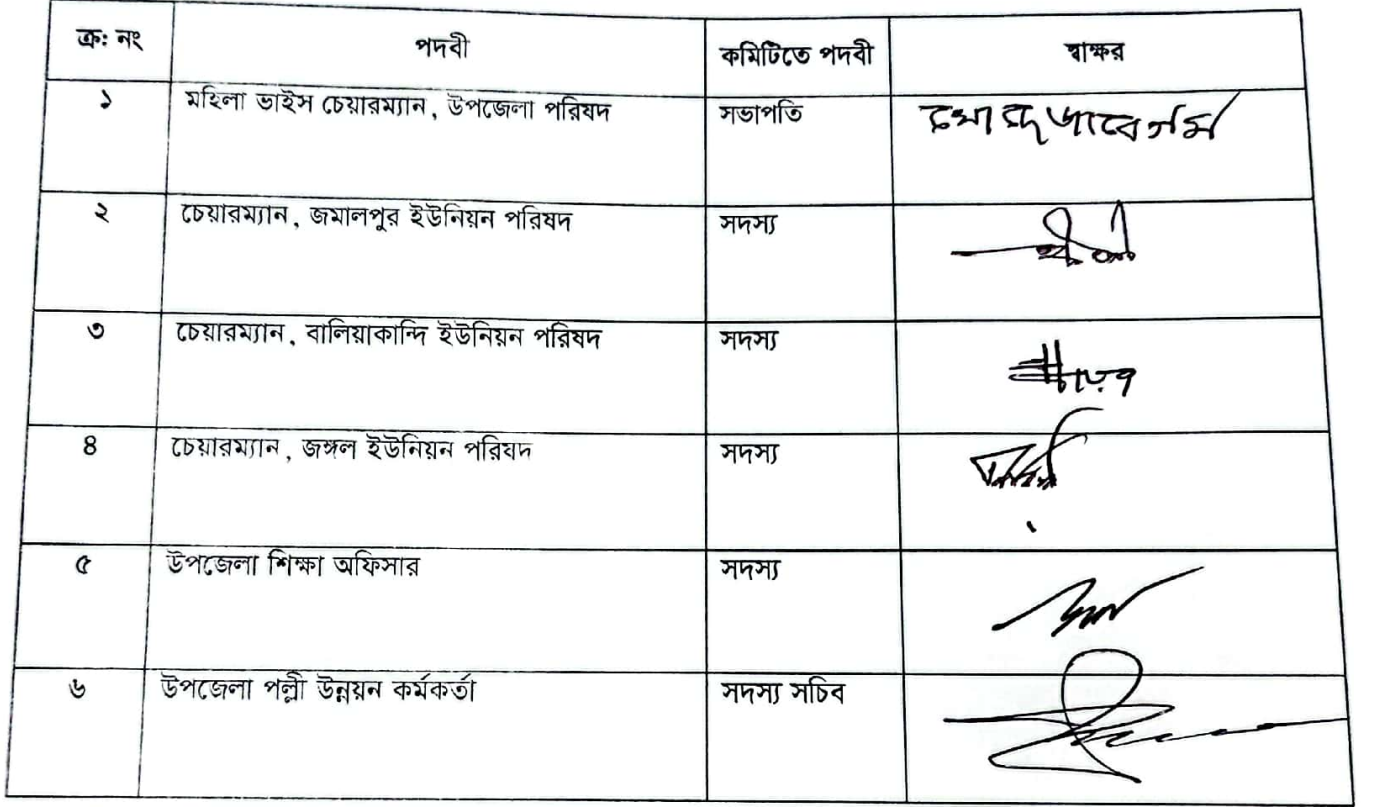 ক্র: নং পদবী কমিটিতে পদবী স্বাক্ষর
১ মহিলা ভাইস চেয়ারম্যান, উপজেলা পরিষদ সভাপতি
২ চেয়ারম্যান, জমালপুর ইউনিয়ন পরিষদ সদস্য
৩ চেয়ারম্যান, বালিয়াকান্দি ইউনিয়ন পরিষদ সদস্য
৪ চেয়ারম্যান, জঙ্গল ইউনিয়ন পরিষদ সদস্য
৫ উপজেলা শিক্ষা অফিসার সদস্য
৬ উপজেলা পল্লী উন্নয়ন কর্মকর্তা সদস্য সচিব